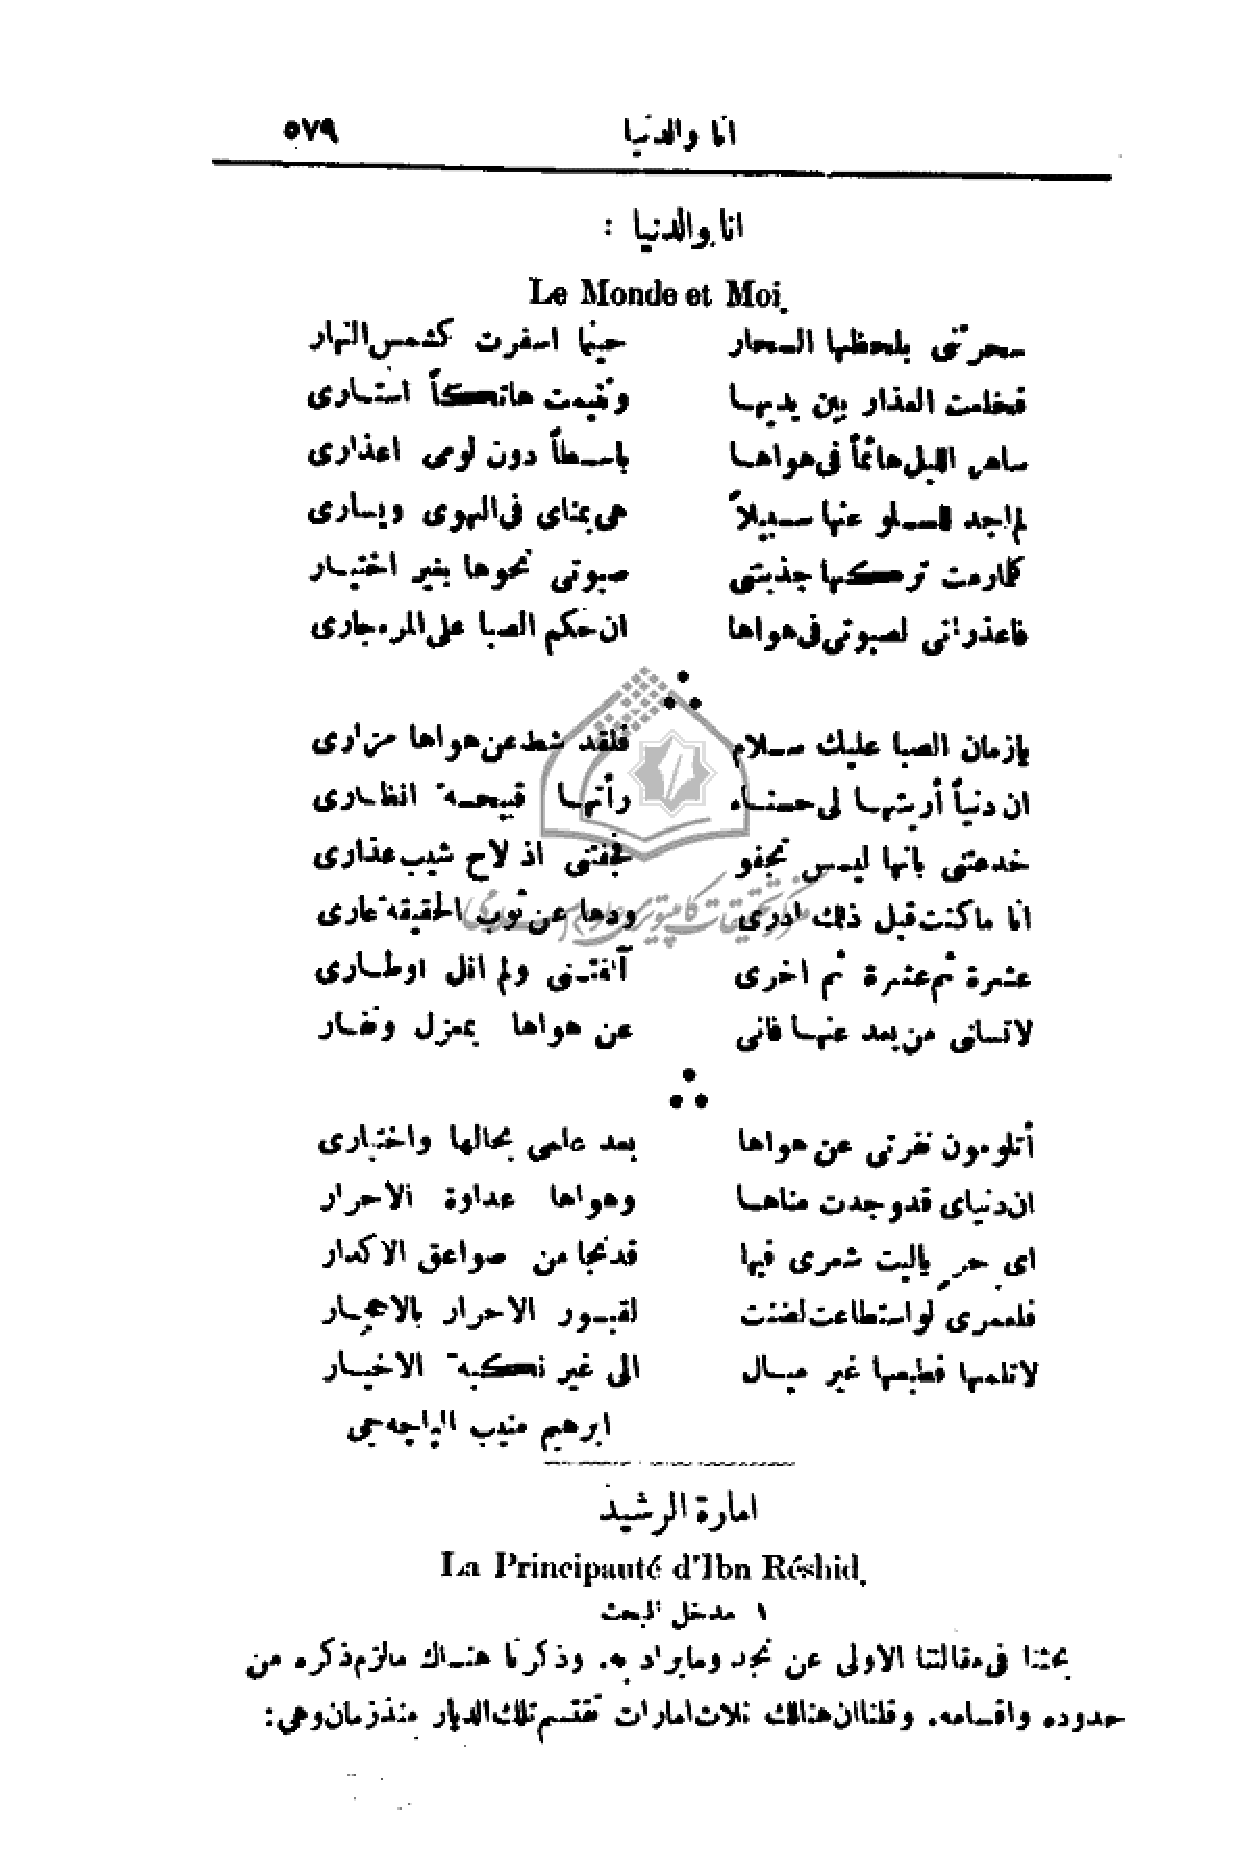 انا والدنيا ٥٧٩
انا والدنيا :
Le Monde et Moi.
سحرتني بلحظها السحار حينما اسفرت كشمس النهار
فخلعت العذار بين يديها وتخيمت هاتكاً استاري
ساهر الليل هائماً في هواها باسطاً دون لومى اعذارى
لم اجد للسلو عنها سبيلاً هي بمناى في الهوى ويسارى
كلما رمت تركها جذبتني صبوتى نحوها بغير اختيار
فاعذرانى لصبوتى في هواها ان حكم الصبا على المرء جارى
يازمان الصبا عليك سلام فلقد شط عن هواها مزارى
ان دنياً أريتها لى حسناء رأتها قبيحة انظارى
خدعتنى بانها ليس تجفو فجفتنى اذ لاح شيب عذارى
انا ما كنت قبل ذلك ادرى ودها عن ثوب الحقيقة عارى
عشرة ثم عشرة ثم اخرى آنفتنى ولم انل اوطارى
لاتسانى من بعد عنها فانى عن هواها بمعزل ونفار
أتلومون نفرتى عن هواها بعد علمى بحالها واختبارى
ان دنياى قد وجدت مناها وهواها عداوة الاحرار
اى حر ياليت شعرى فيها قد نجا من صواعق الاكدار
فلعمرى لو استطاعت لضنت لقبور الاحرار بالاحجار
لاتلمها فطبعها غير ميال الى غير نكبة الاخيار
ابرهيم منيب الباجه جى
امارة الرشيد
La Principauté d'Ibn Réshid.
١ مدخل البحث
بحثنا في مقالتنا الاولى عن نجد وما يراد به. وذكرنا هناك مالزم ذكره من
حدوده واقسامه. وقلنا ان هنالك ثلاث امارات تقتسم تلك الديار منذ زمان وهي: